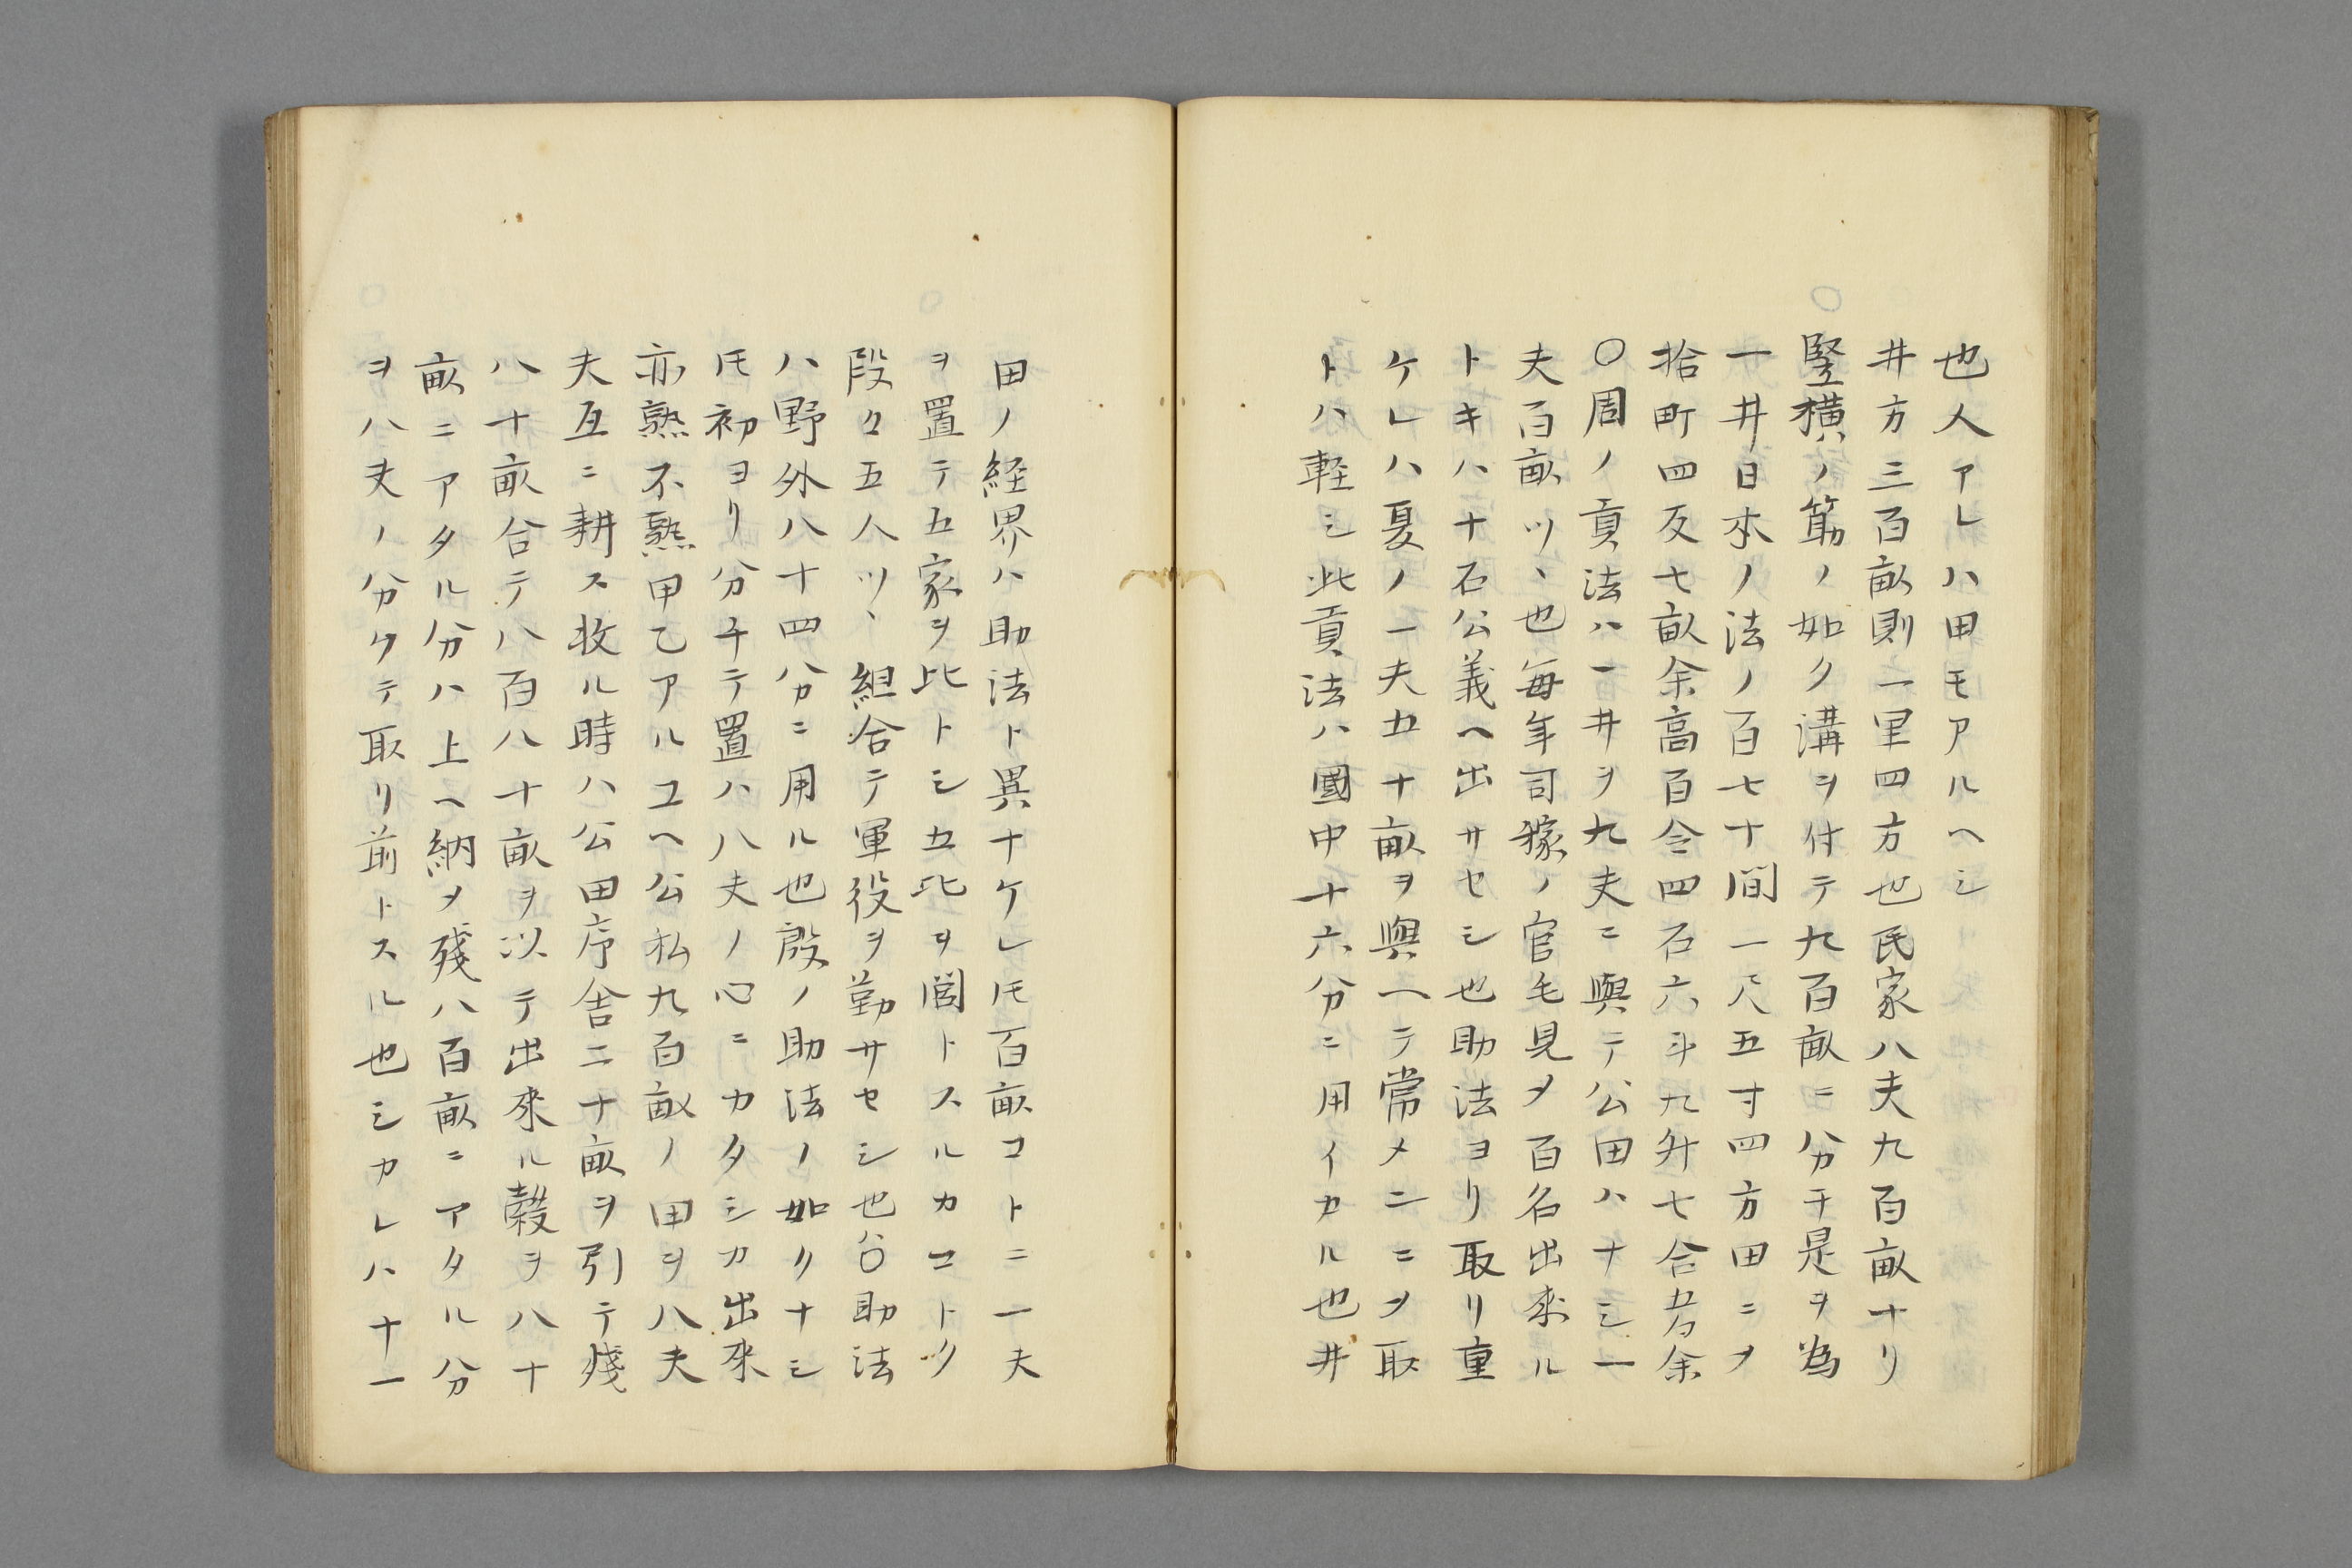 也人アレハ田モアルヘシ
井方三百畝則一里四方也民家八夫九百畝ナリ
竪横ノ筋ノ如ク溝ヲ付テ九百畝ニ分チ是ヲ為
一井日本ノ法ノ百七十間一尺五寸四方田ニメ
拾町四反七畝余高百令四石六斗九升七合五勺余
○周ノ貢法ハ一井ヲ九夫ニ與テ公田ハナシ一
夫百畝ツヽ也毎年司稼ノ官毛見メ百石出来ル
トキハ十石公義ヘ出サセシ也助法ヨリ取リ重
ケレハ夏ノ一夫五十畝ヲ與ヘテ常メニニメ取
トハ軽シ此貢法ハ國中十六分ニ用イカル也井
田ノ経界ハ助法ト異ナケレ㡬百畝コトニ一夫
ヲ置テ五家ヲ比トシ五比ヲ閭トスルカコトク
段々五人ツヽ組合テ軍役ヲ勤サセシ也○助法
ハ野外八十四分ニ用ル也殷ノ助法ノ如クナシ
𪜈初ヨリ分チテ置ハ八夫ノ心ニカタシカ出来
亦熟不熟甲乙アルユヘ公私九百畝ノ田ヲ八夫
夫互ニ耕ス收ル時ハ公田序舎二十畝ヲ引テ残
八十畝合テ八百八十畝ヲ以テ出來ル穀ヲ八十
畝ニアタル分ハ上ヘ納メ殘八百畝ニアタル分
ヲハ夫ノ分ケテ取リ前トスル也シカレハ十一